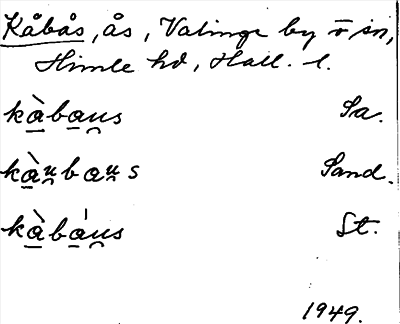 Kåbås, ås, Valinge by o sn,
Himle hd, Hall. l.
kàbaus Sa.
kàubaus Sand.
kàbáus St.
1949.